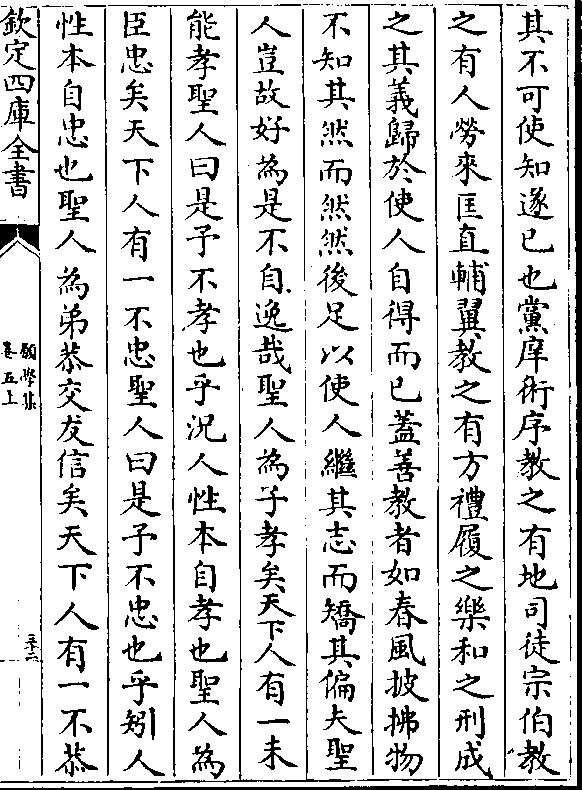 其不可使知遂已也黨庠術序教之有地司徒宗伯教
之有人勞來匡直輔翼教之有方禮履之樂和之刑成
之其義歸於使人自得而已蓋善教者如春風披拂物
不知其然而然然後足以使人繼其志而矯其偏夫聖
人豈故好為是不自逸哉聖人為子孝矣天下人有一未
能孝聖人曰是予不孝也乎況人性本自孝也聖人為
臣忠矣天下人有一不忠聖人曰是予不忠也乎矧人
性本自忠也聖人為弟恭交友信矣天下人有一不恭
欽定四庫全書
願學集
卷五上
三十二